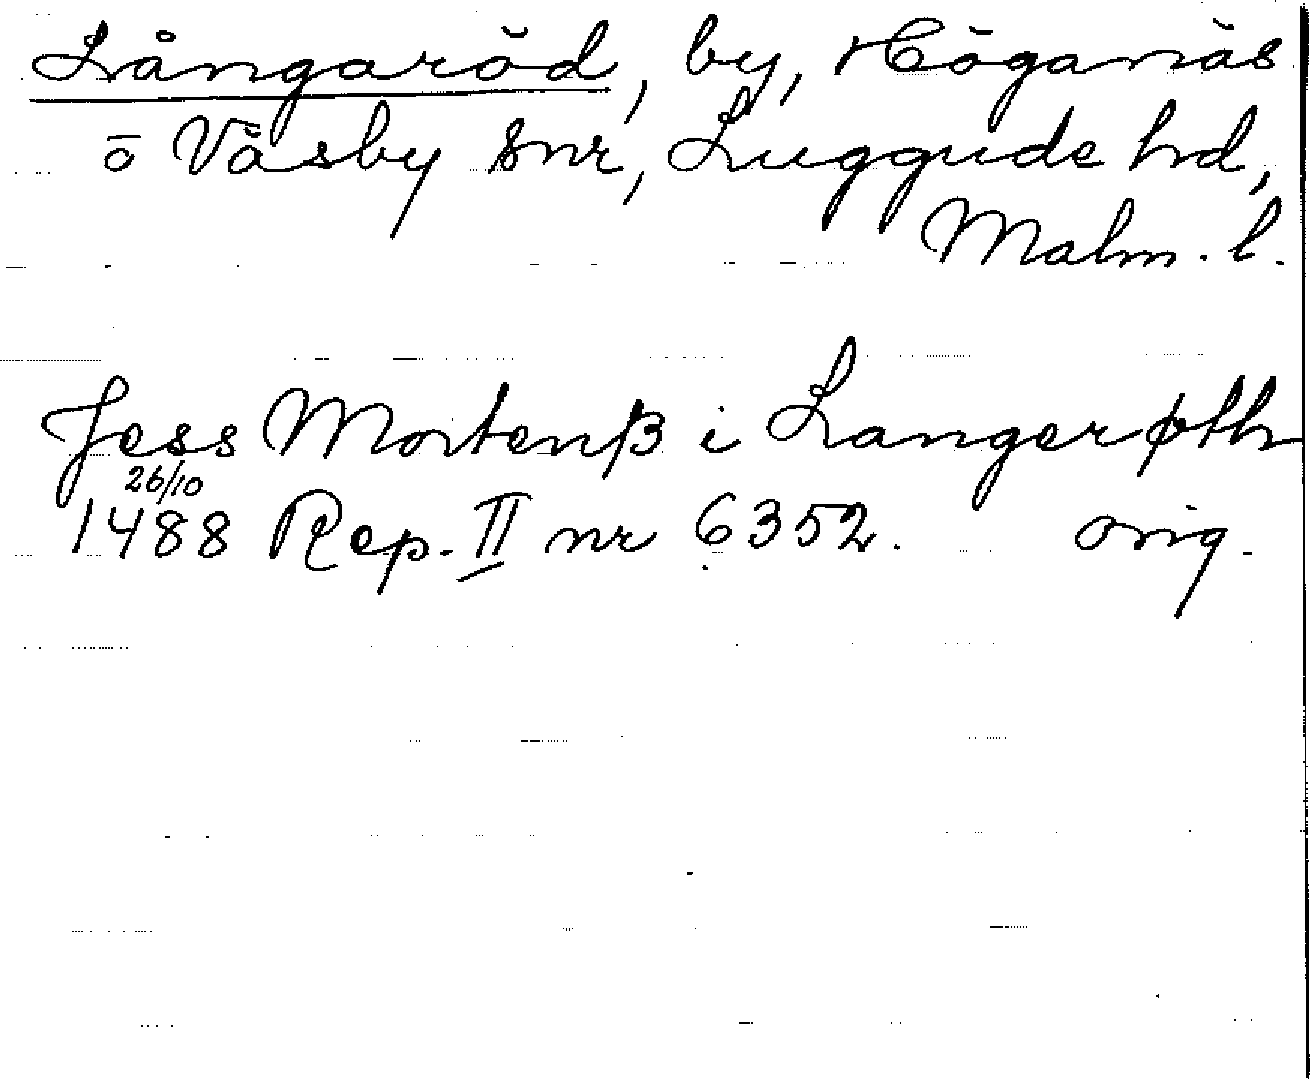 Långaröd, by, Höganäs
o Väsby snr, Luggude hd,
Malm. l.
Jess Mortenß i Langerøth
26/10
1488 Rep. II nr 6352. orig.